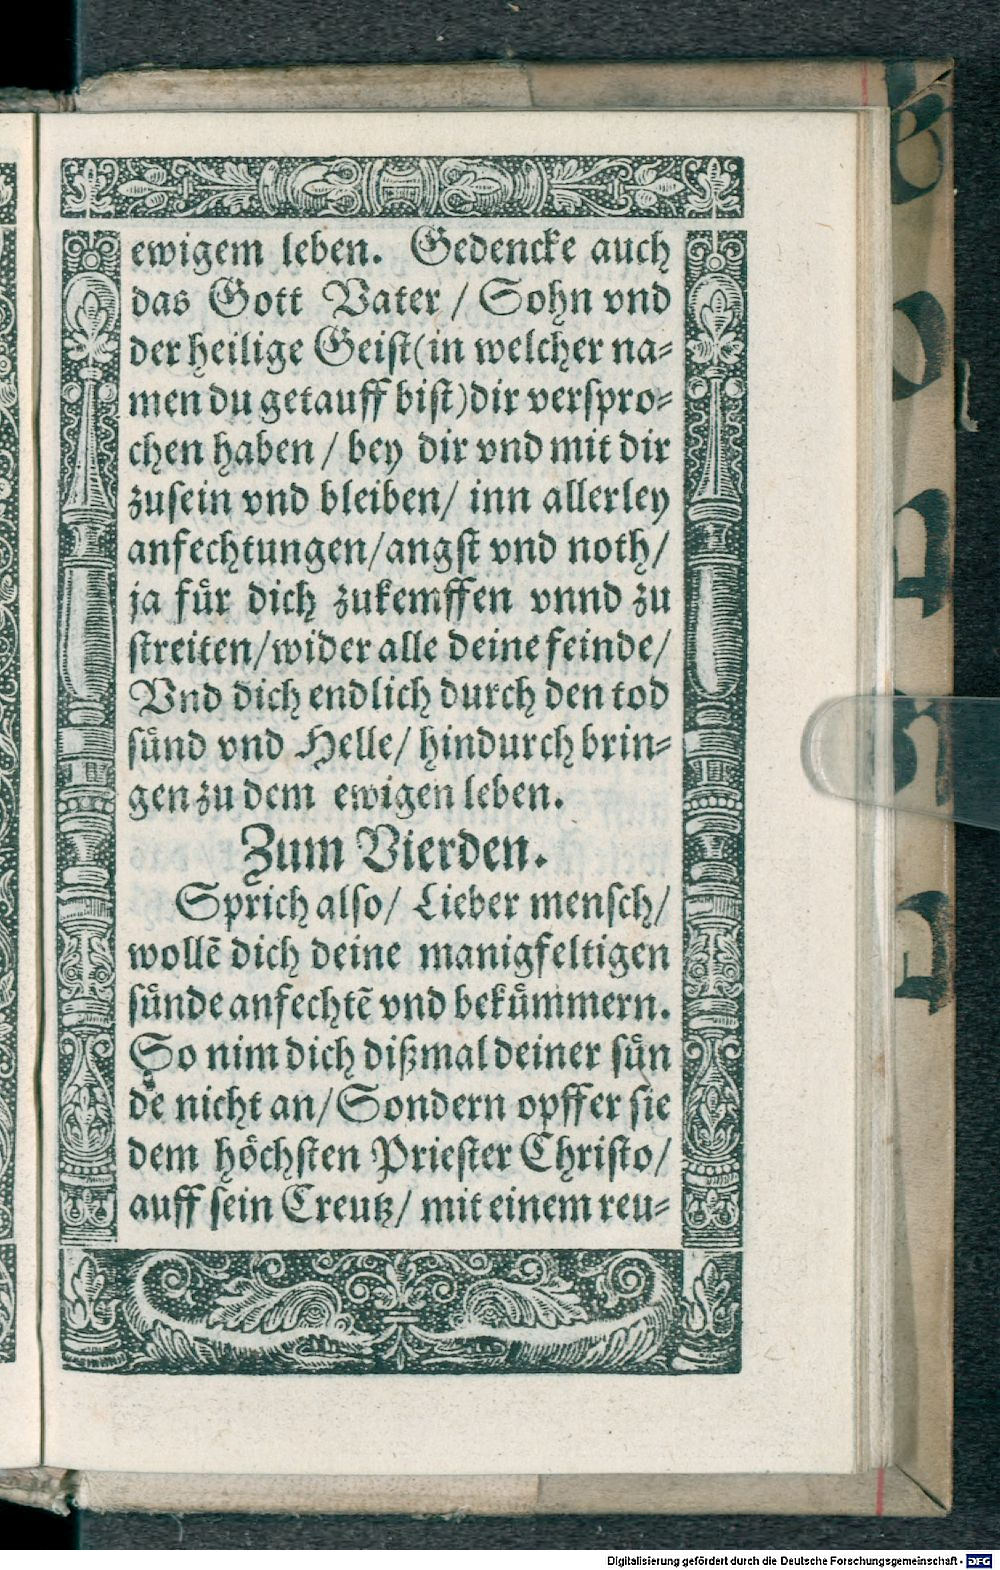 ewigem leben. Gedencke auch
das Gott Vater / Sohn vnd
der heilige Geist (in welcher na⸗
men du getauff bist) dir verspro⸗
chen haben / bey dir vnd mit dir
zusein vnd bleiben / inn allerley
anfechtungen / angst vnd noth /
ja fuͤr dich zukempffen vnnd zu
streiten / wider alle deine feinde /
Vnd dich endlich durch den tod
suͤnd vnd Helle / hindurch brin⸗
gen zu dem ewigen leben.
Zum Vierden.
Sprich also / Lieber mensch /
wollē dich deine manigfeltigen
suͤnde anfechtē vnd bekuͤmmern.
So nim dich dißmal deiner suͤn
de nicht an / Sondern opffer sie
dem hoͤchsten Priester Christo /
auff sein Creutz / mit einem reu⸗
Digitalisierung gefördert durch die Deutsche Forschungsgemeinschaft - DFG